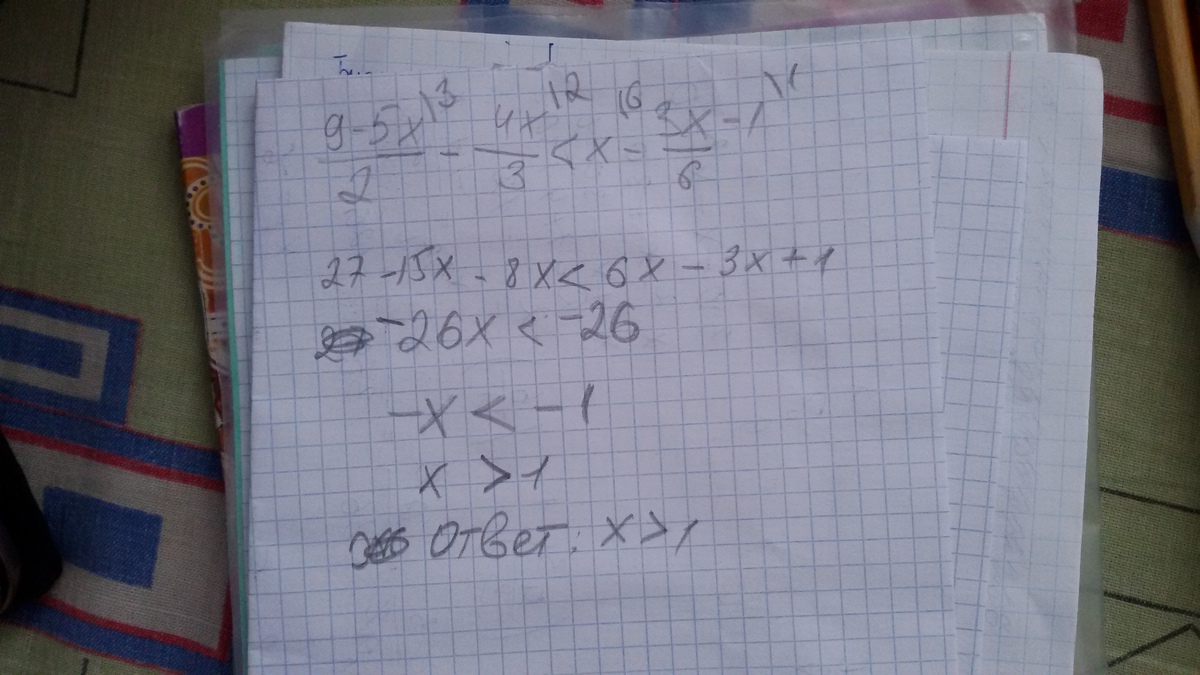 (9-5x)/2 \3 - 4x/3 \2 < x \6 - (3x-1)/6 \1
27 - 15x - 8x < 6x - 3x + 1
-26x < -26
-x < -1
x > 1
Ответ: x > 1